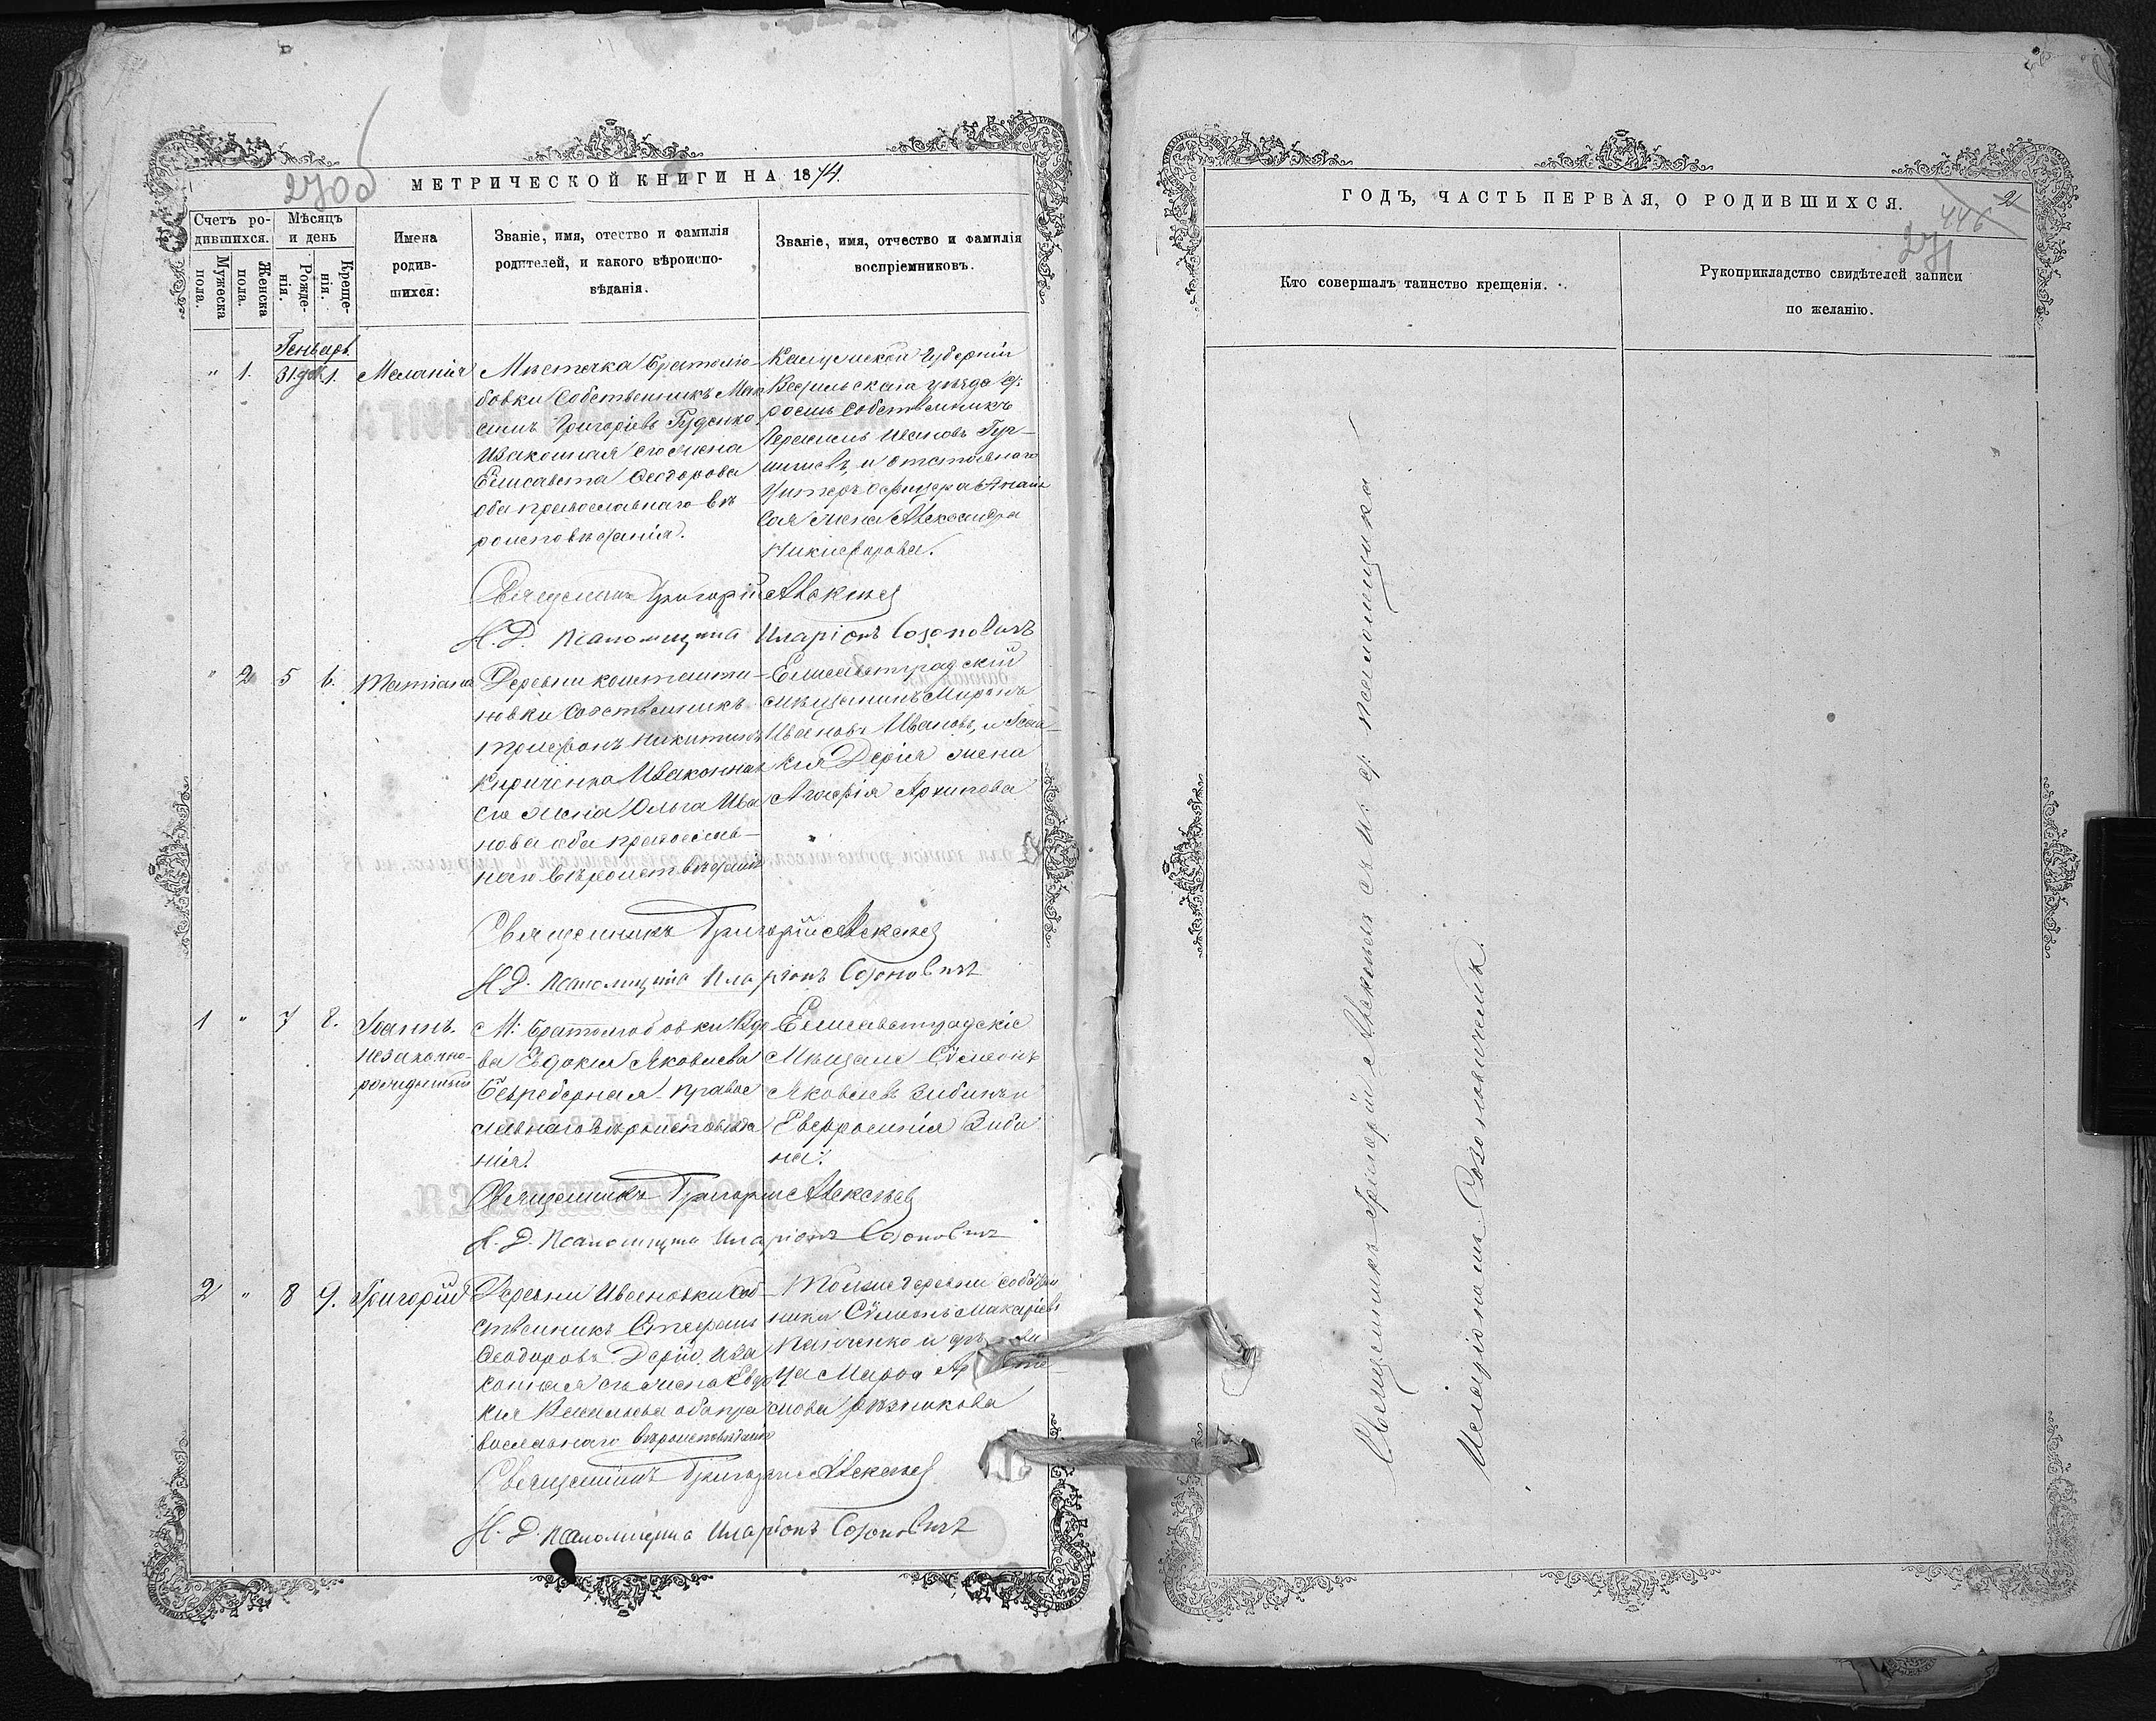 270 об
МЕТРИЧЕСКОЙ КНИГИ НА 1874.
Счетъ ро-
дившихся.
Мужеска
пола.
Женска
пола.
Мѣсяцъ
и день
Рожде-
нія.
Креще-
нія.
Имена
родив-
шихся:
Званіе, имя, отество и фамилія
родителей, и какого вѣроиспо-
вѣданія.
Званіе, имя, отчество и фамилія
воспріемниковъ.
Геньварь.
" 1. 31 дек 1. Меланія
Мѣстечка Братолю-
бовки Собственникъ Мак
симъ Григоріевъ Гуденко
Изаконная его жена
Елисавета Феодорова
оба православнаго вѣ
роисповѣданія.
Калужской Губерніи
уѣзда
собственникъ
Герасимъ Ивановъ
и отставнаго
Унтеръ Офицера
жена Александра
Никифорова.
Священникъ Григорій Алексѣев
И. Д. Псаломщика Иларіонъ Созоновичъ
" 2 5 6. Татіана
Деревни Константи-
новки Собственникъ
Трифонъ Никитинъ
Кириченко Изаконная
его жена Ольга Ива
нова оба православ-
наго вѣроисповѣданія
Елисаветградскій
мѣщанинъ Миронъ
Ивановъ Ивановъ, и
Дерія жена
Агафія Архипова
Священникъ Григорій Алексѣев
И. Д. Псаломщика Иларіонъ Созоновичъ
1 " 7 8. Іоаннъ.
незаконно-
рожденный
М: Братолюбовки Вдо
ва Евдокия Яковлева
Безреберная правос
лавнаго вѣроисповѣда
нія.
Елисаветградскіе
Мѣщане Сѵмеонъ
Яковлевъ Зибинъ и
Евфросинія Зиби
на.
Священникъ Григорій Алексѣев
И. Д. Псаломщика Иларіонъ Созоновичъ
2 " 8 9. Григорій
Деревни Ивановки Соб
ственникъ Стефанъ
Феодоровъ Дерій, Иза
конная его жена Евдо
кия Васильева оба пра
вославнаго вѣроисповѣданія
Тойже деревни собствен
ники Сѵмеонъ Макаріевъ
и
ца Марфа
Рѣзникова
Священникъ Григорій Алексѣев
И. Д. Псаломщика Иларіонъ Созоновичъ
2
446
271
ГОДЪ, ЧАСТЬ ПЕРВАЯ, О РОДИВШИХСЯ.
Кто совершалъ таинство крещенія.
Рукоприкладство свидѣтелей записи
по желанію.
Священникъ Григорій Алексѣевъ съ и: д: псаломщика
Иларіономъ Созоновичемъ.